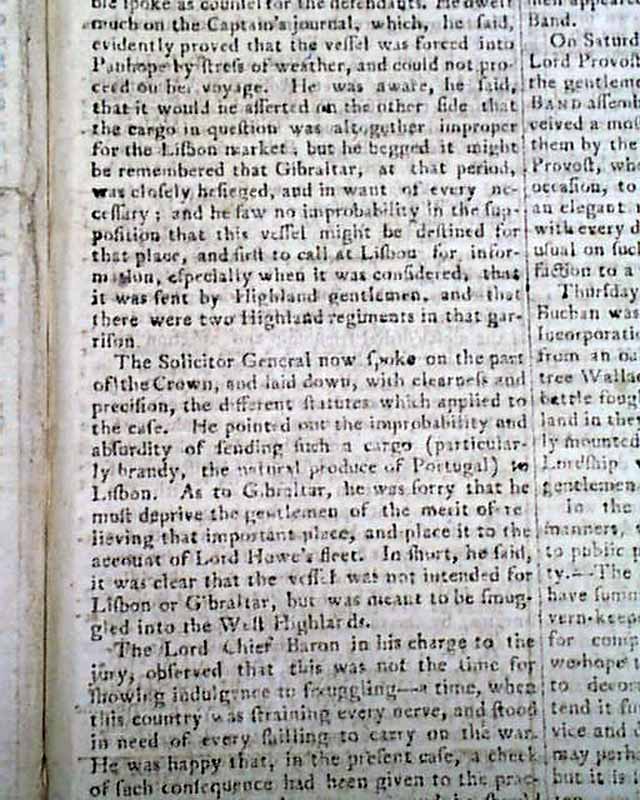 ble spoke as counsel for the defendants. He dwelt
much on the Captain's journal, which, he ſaid,
evidently proved that the veſſel was forced into
Panhope by ſtreſs of weather, and could not pro-
ceed on her voyage. He was aware, he ſaid,
that it would be aſſerted on the other ſide that
the cargo in queſtion was altogether improper
for the Liſbon market; but he begged it might
be remembered that Gibraltar, at that period,
was cloſely beſieged, and in want of every ne-
ceſſary; and he ſaw no improbability in the ſup-
poſition that this veſſel might be deſtined for
that place, and firſt to call at Liſbon for infor-
mation, eſpecially when it was conſidered, that
it was ſent by Highland gentlemen, and that
there were two Highland regiments in that gar-
riſon.
The Solicitor General now ſpoke on the part
of the Crown, and laid down, with clearneſs and
preciſion, the different ſtatutes which applied to
the caſe. He pointed out the improbability and
abſurdity of ſending ſuch a cargo (particular-
ly brandy, the natural produce of Portugal) to
Liſbon. As to Gibraltar, he was ſorry that he
muſt deprive the gentlemen of the merit of re-
lieving that important place, and place it to the
account of Lord Howe's fleet. In ſhort, he ſaid,
it was clear that the veſſel was not intended for
Liſbon or Gibraltar, but was meant to be ſmug-
gled into the Weſt Highlands.
The Lord Chief Baron in his charge to the
jury, obſerved that this was not the time for
ſhowing indulgence to ſmuggling—a time, when
this country was ſtraining every nerve, and ſtood
in need of every ſhilling to carry on the war.
He was happy that, in the preſent caſe, a check
of ſuch conſequence had been given to the prac-
men appeared
Band.
On Saturd
Lord Provoſt
the gentlem
BAND aſſemb
ceived a moſ
them by the
Provoſt, wh
occaſion, to
an elegant
with every d
uſual on ſuc
faction to a
Thurſday
Buchan was
Incorporati
from an oa
tree Wallac
battle foug
land in they
ly mounted
Lordſhip
gentlemen
In the
manners,
to public p
ty.—The
have ſumm
vern-keepe
for comp
we hope t
to decor
tend it fu
vice and
may perha
but it is